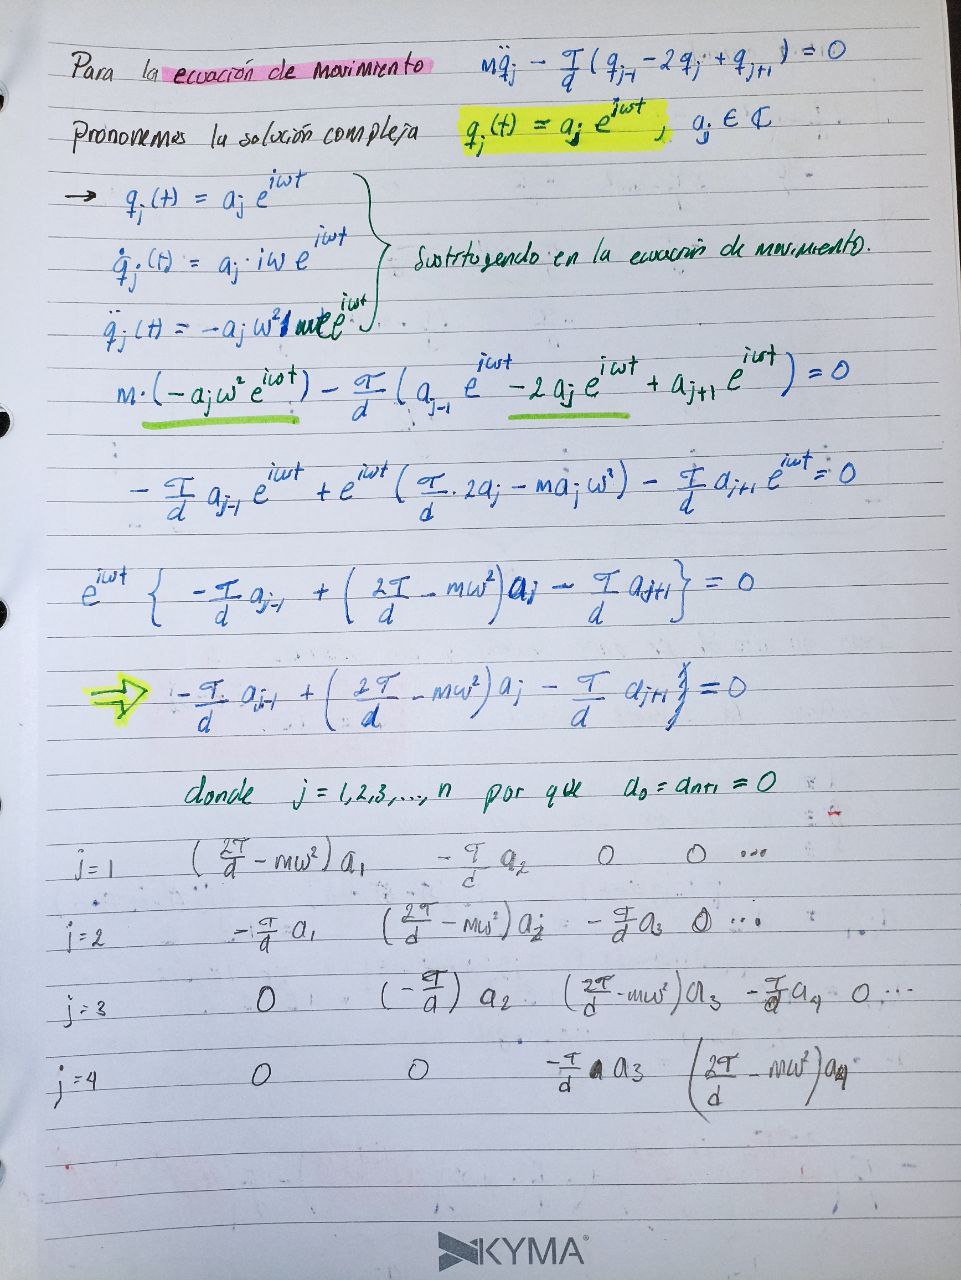 Para la ecuación de movimiento mq̈j − τ/d (qj-1 − 2qj + qj+1) = 0
Pronovemos la solución compleja qj(t) = aj e^iωt, aj ∈ ℂ
→ qj(t) = aj e^iωt
q̇j(t) = aj · iω e^iωt
Sustituyendo en la ecuación de movimiento.
q̈j(t) = −aj ω² e^iωt
m·(−aj ω² e^iωt) − τ/d (aj-1 e^iωt − 2 aj e^iωt + aj+1 e^iωt) = 0
− τ/d aj-1 e^iωt + e^iωt (τ/d · 2aj − maj ω²) − τ/d aj+1 e^iωt = 0
e^iωt { − τ/d aj-1 + (2τ/d − mω²) aj − τ/d aj+1 } = 0
⇒ − τ/d aj-1 + (2τ/d − mω²) aj − τ/d aj+1 = 0
donde j = 1,2,3,...,n por que a0 = an+1 = 0
j=1 (2τ/d − mω²) a1 − τ/d a2 0 0 ...
j=2 − τ/d a1 (2τ/d − mω²) a2 − τ/d a3 0 ...
j=3 0 (− τ/d) a2 (2τ/d − mω²) a3 − τ/d a4 0 ...
j=4 0 0 − τ/d a3 (2τ/d − mω²) a4
KYMA®